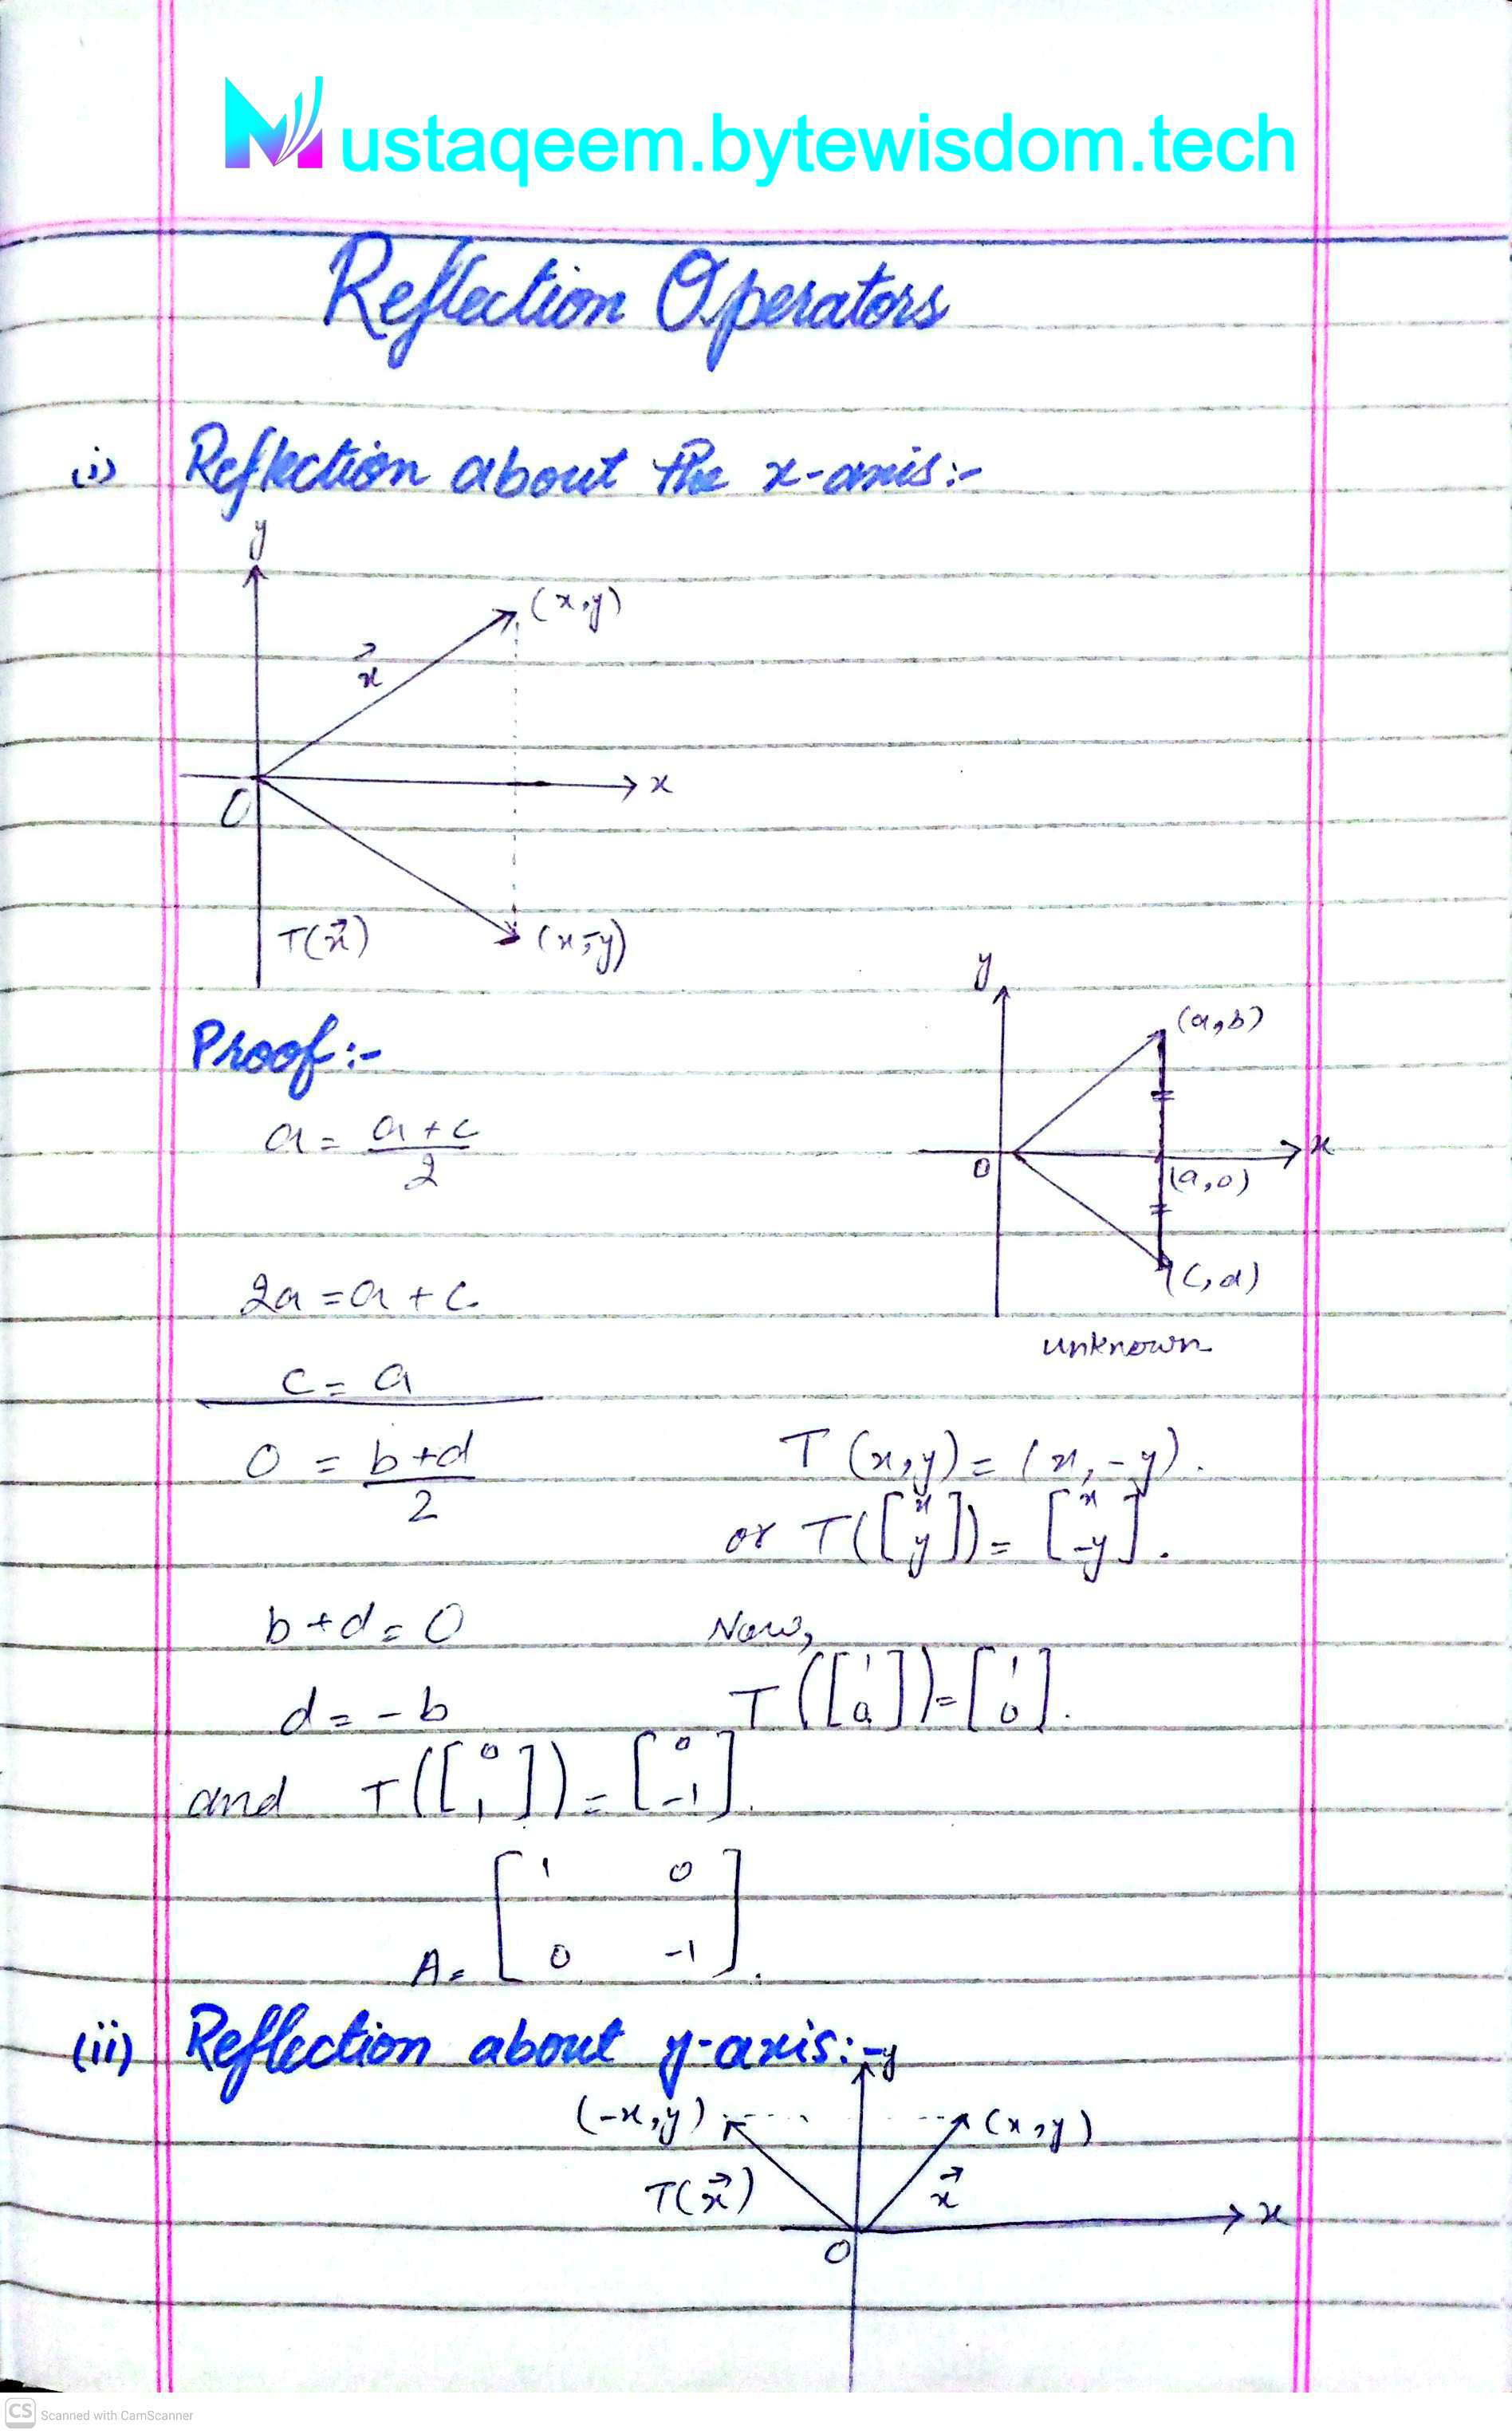 Mustaqeem.bytewisdom.tech
Reflection Operators
(i) Reflection about the x-axis:-
y
(x,y)
x⃗
x
O
T(x⃗)
(x,-y)
Proof:-
a = a+c/2
2a = a + c.
c = a
0 = b+d/2
b+d = 0
d = -b
y
(a,b)
x
0
(a,0)
(c,d)
unknown
T(x,y) = (x,-y).
or T([x y]) = [x -y].
Now,
T([1 0]) = [1 0].
and T([0 1]) = [0 -1].
A = [1 0
0 -1].
(ii) Reflection about y-axis:-
y
(-x,y)
(x,y)
T(x⃗)
x⃗
x
O
CS Scanned with CamScanner